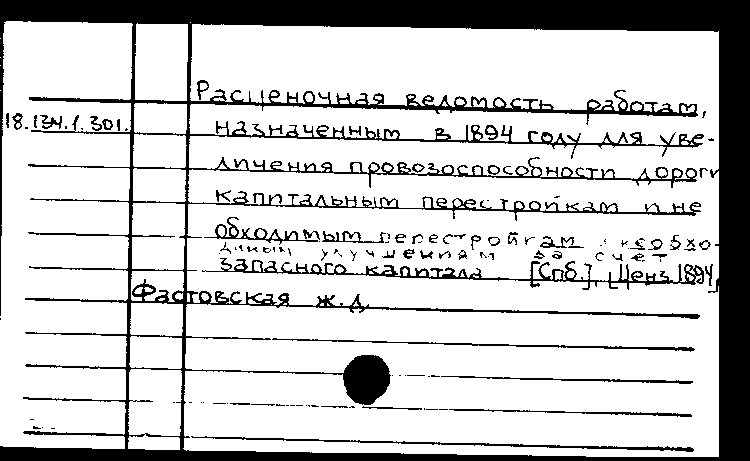 Расценочная ведомость работам,
18.134.1.301.
назначенным в 1894 году для уве-
личения провозоспособности дороги
капитальным перестройкам и не
обходимым перестройкам необхо-
димым улучшениям за счет
запасного капитала. [Спб.], Ценз 1894,
Фастовская ж.д.